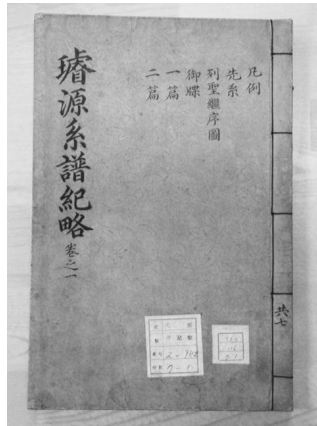 凡例
先系
列聖繼序圖
御牒
一篇
二篇
璿源系譜紀略 卷之一
共七